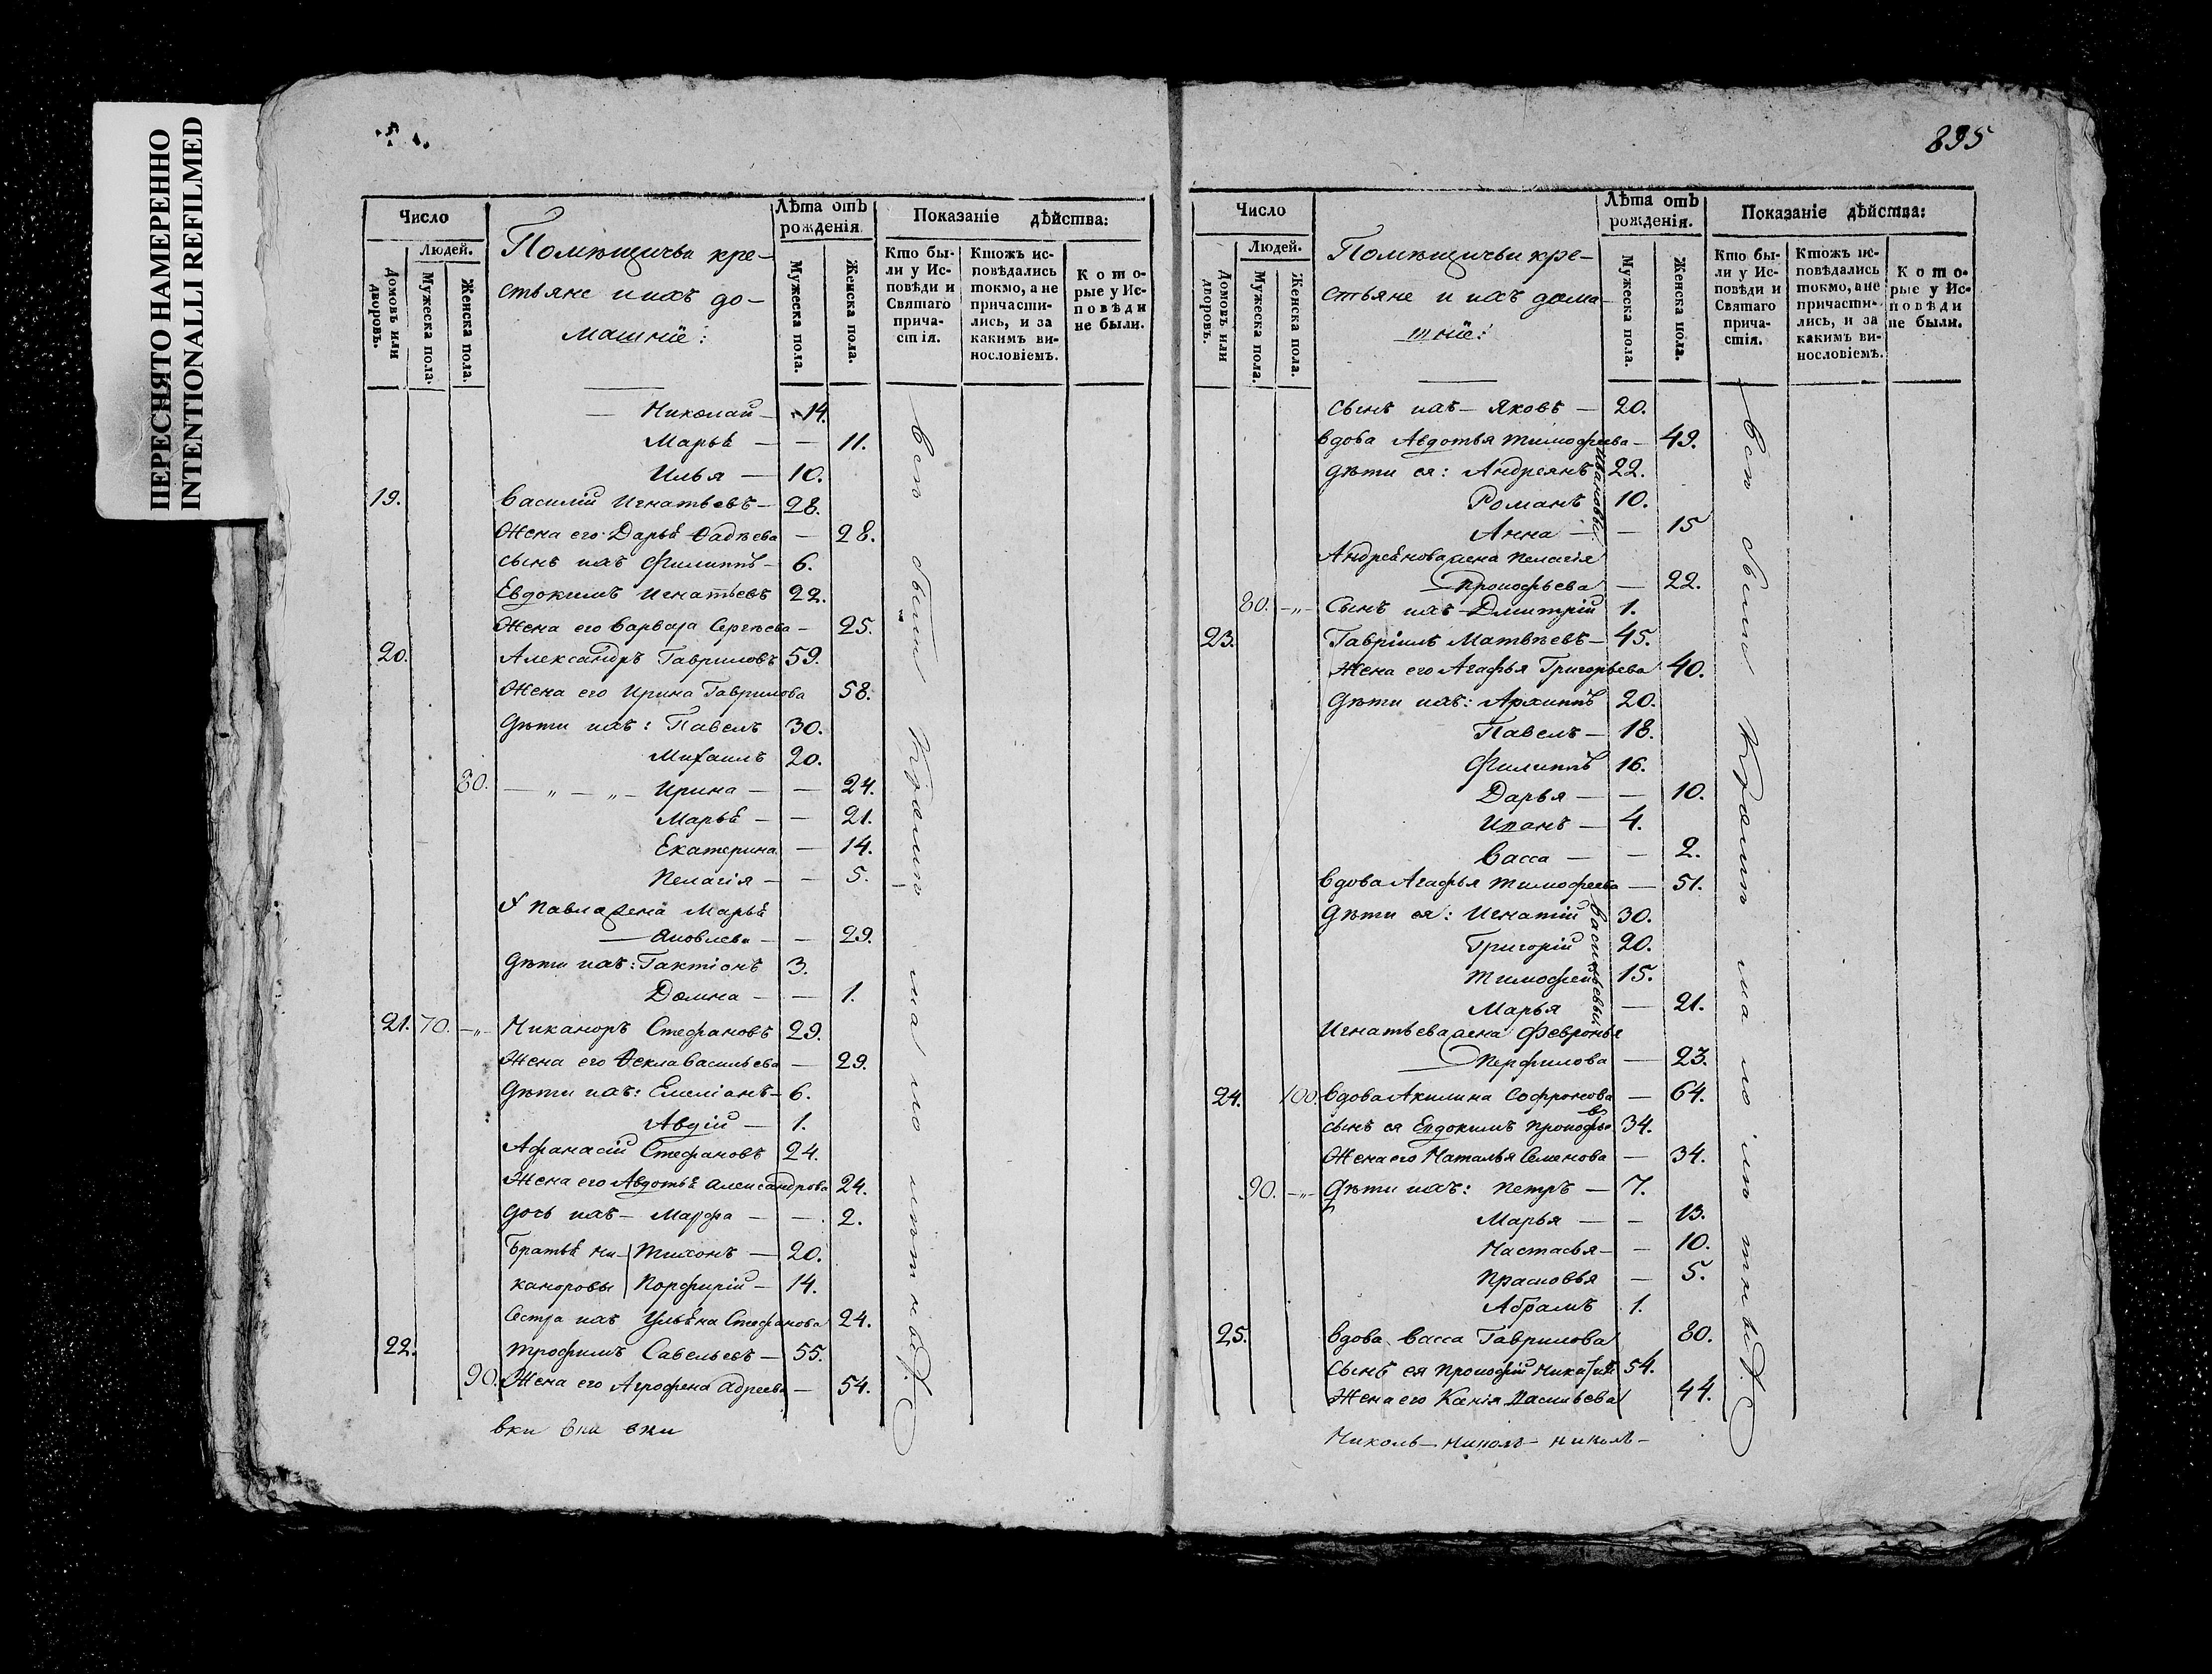 ПЕРЕСНЯТО НАМЕРЕННО
INTENTIONALLI REFILMED
Число
Людей.
Домовъ или дворовъ.
Мужеска пола.
Женска пола.
Помѣщичьи кре-
стьяне и ихъ до-
машніе:
Лѣта отъ рожденія.
Мужеска пола.
Женска пола.
Показаніе дѣйства:
Кто бы-
ли у Ис-
повѣди и
Святаго
прича-
стія.
Ктожъ ис-
повѣдались
токмо, а не
причасти-
лись, и за
какимъ ви-
нословіемъ.
Кото-
рые у Ис-
повѣди
не были.
— Николай — 14.
Марья — — 11.
Илья — 10.
19. Василій Игнатьевъ — 28.
Жена его Дарья Фадѣева — 28.
Сынъ ихъ Филиппъ — 6.
Евдокимъ Игнатьевъ 22.
Жена его Варвара Сергѣева — 25.
20. Александръ Гавриловъ 59.
Жена его Ирина Гаврилова 58.
Дѣти ихъ: Павелъ 30.
Михаилъ 20.
80. — „ — „ — Ирина — — 24.
Марья — — 21.
Екатерина — 14.
Пелагія — — 5.
Павла жена Марья
— Яковлева — — 29.
Дѣти ихъ: Гактіонъ 3.
Домна — — 1.
21. 70. — „ — Никаноръ Стефановъ 29.
Жена его Ѳекла Васильева — 29.
Дѣти ихъ: Емеліанъ — 6.
Авдій — 1.
Афанасій Стефановъ 24.
Жена его Авдотья Александрова 24.
Дочь ихъ — Марфа — — 2.
Братья Ни- Тихонъ — 20.
каноровы Порфирій — 14.
Сестра ихъ Ульяна Стефанова 24.
22. Трофимъ Савельевъ — 55.
90. Жена его Агрофена Адреева — 54.
вки вки вки
Всѣ были
835
Число
Людей.
Домовъ или дворовъ.
Мужеска пола.
Женска пола.
Помѣщичьи кре-
стьяне и ихъ дома-
шніе:
Лѣта отъ рожденія.
Мужеска пола.
Женска пола.
Показаніе дѣйства:
Кто бы-
ли у Ис-
повѣди и
Святаго
прича-
стія.
Ктожъ ис-
повѣдались
токмо, а не
причасти-
лись, и за
какимъ ви-
нословіемъ.
Кото-
рые у Ис-
повѣди
не были.
Сынъ ихъ — Яковъ — 20.
Вдова Авдотья Тимофеева — 49.
Дѣти ея: Андреянъ 22.
Романъ 10.
Анна — — 15
Ивановы
Андреянова жена Пелагія
Прокофьева — 22.
80. — „ — Сынъ ихъ Дмитрій 1.
23. Гавріилъ Матвѣевъ — 45.
Жена его Агафья Григорьева 40.
Дѣти ихъ: Архиппъ 20.
Павелъ — 18.
Филиппъ 16.
Дарья — — 10.
Иванъ — 4.
Васса — — 2.
Вдова Агафья Тимофеева — 51.
Дѣти ея: Игнатій 30.
Григорій 20.
Тимофей 15.
Марья — 21.
Васильевы
Игнатьева жена Февронья
Перфилова — 23.
24. 100. Вдова Акилина Софронова — 64.
Сынъ ея Евдокимъ Прокофьевъ 34.
Жена его Наталья Семенова — 34.
90. — „ — Дѣти ихъ: Петръ — 7.
Марья — — 13.
Настасья — — 10.
Прасковья — 5.
Абрамъ 1.
25. Вдова Васса Гаврилова 80.
Сынъ ея Прокофій 54.
Жена его Ксенія Васильева 44.
Николь — Николь — Николь —
Всѣ были